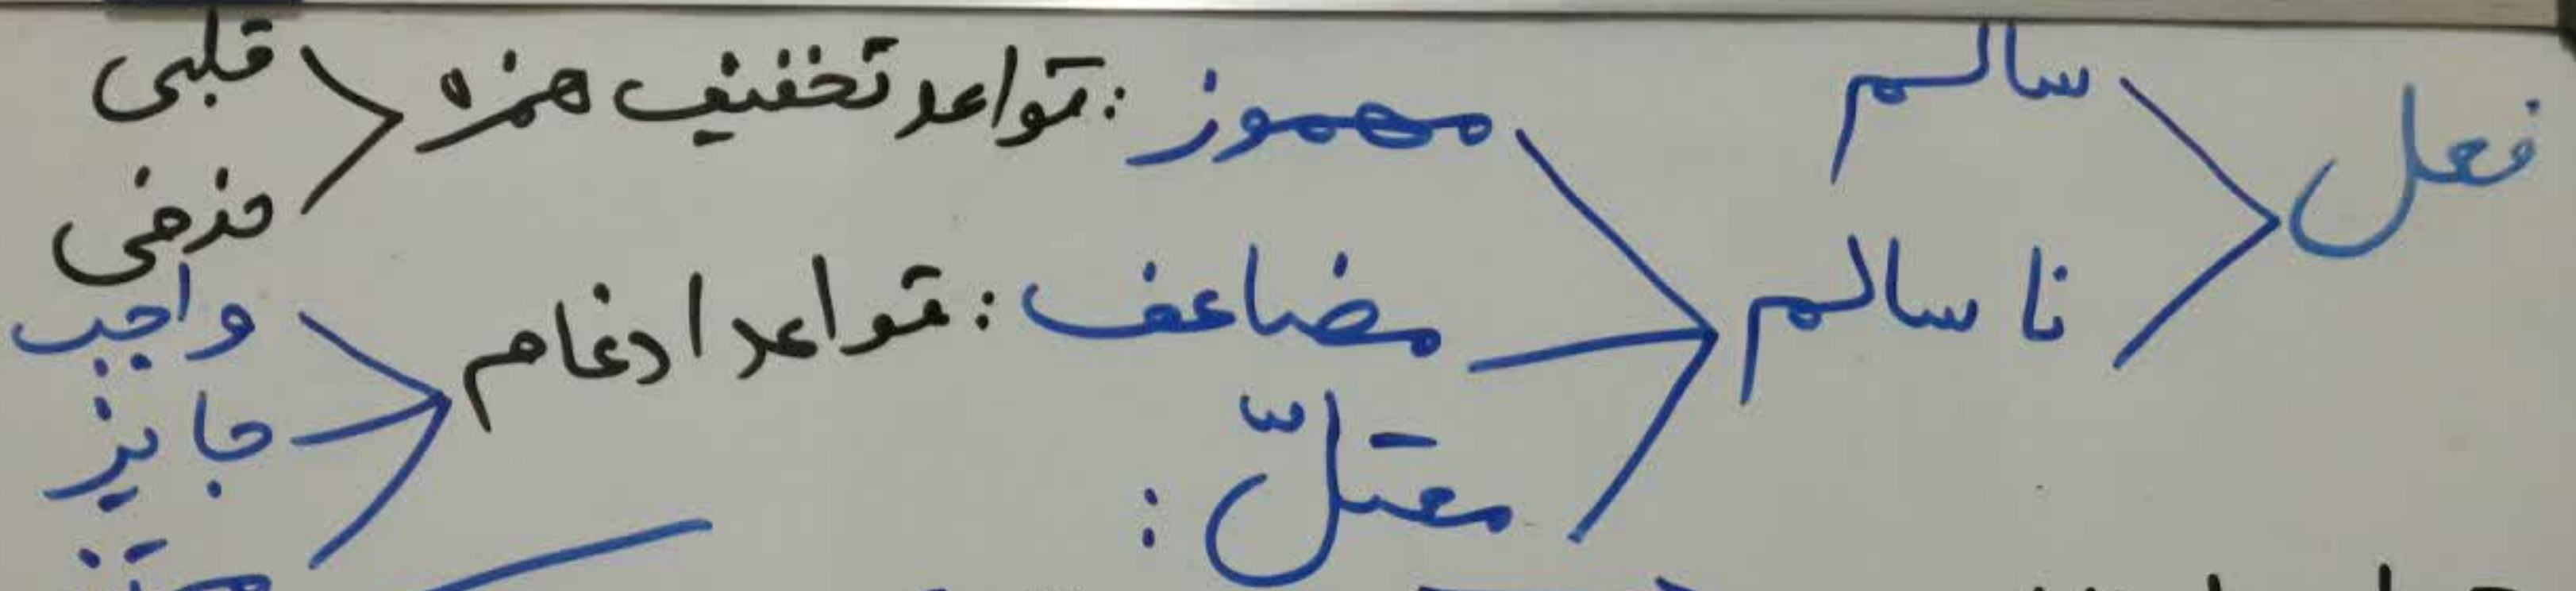 فعل
سالم
نا سالم
مهموز : قواعد تخفیف همزه
قلبی
حذفی
مضاعف : قواعد ادغام
واجب
جایز
معتلّ :